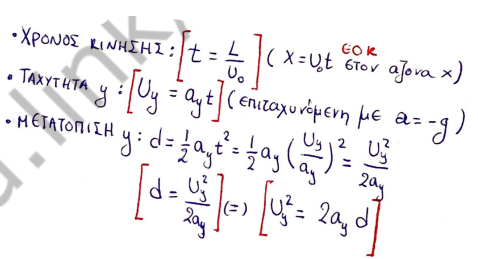 • ΧΡΟΝΟΣ ΚΙΝΗΣΗΣ: [t = L/υ₀] (x = υ₀t ΕΟΚ στον άξονα x)
• ΤΑΧΥΤΗΤΑ y: [υy = ay t] (επιταχυνόμενη με a = -g)
• ΜΕΤΑΤΟΠΙΣΗ y: d = 1/2 ay t² = 1/2 ay (υy/ay)² = υy²/2ay
[d = υy²/2ay] (=) [υy² = 2ay d]